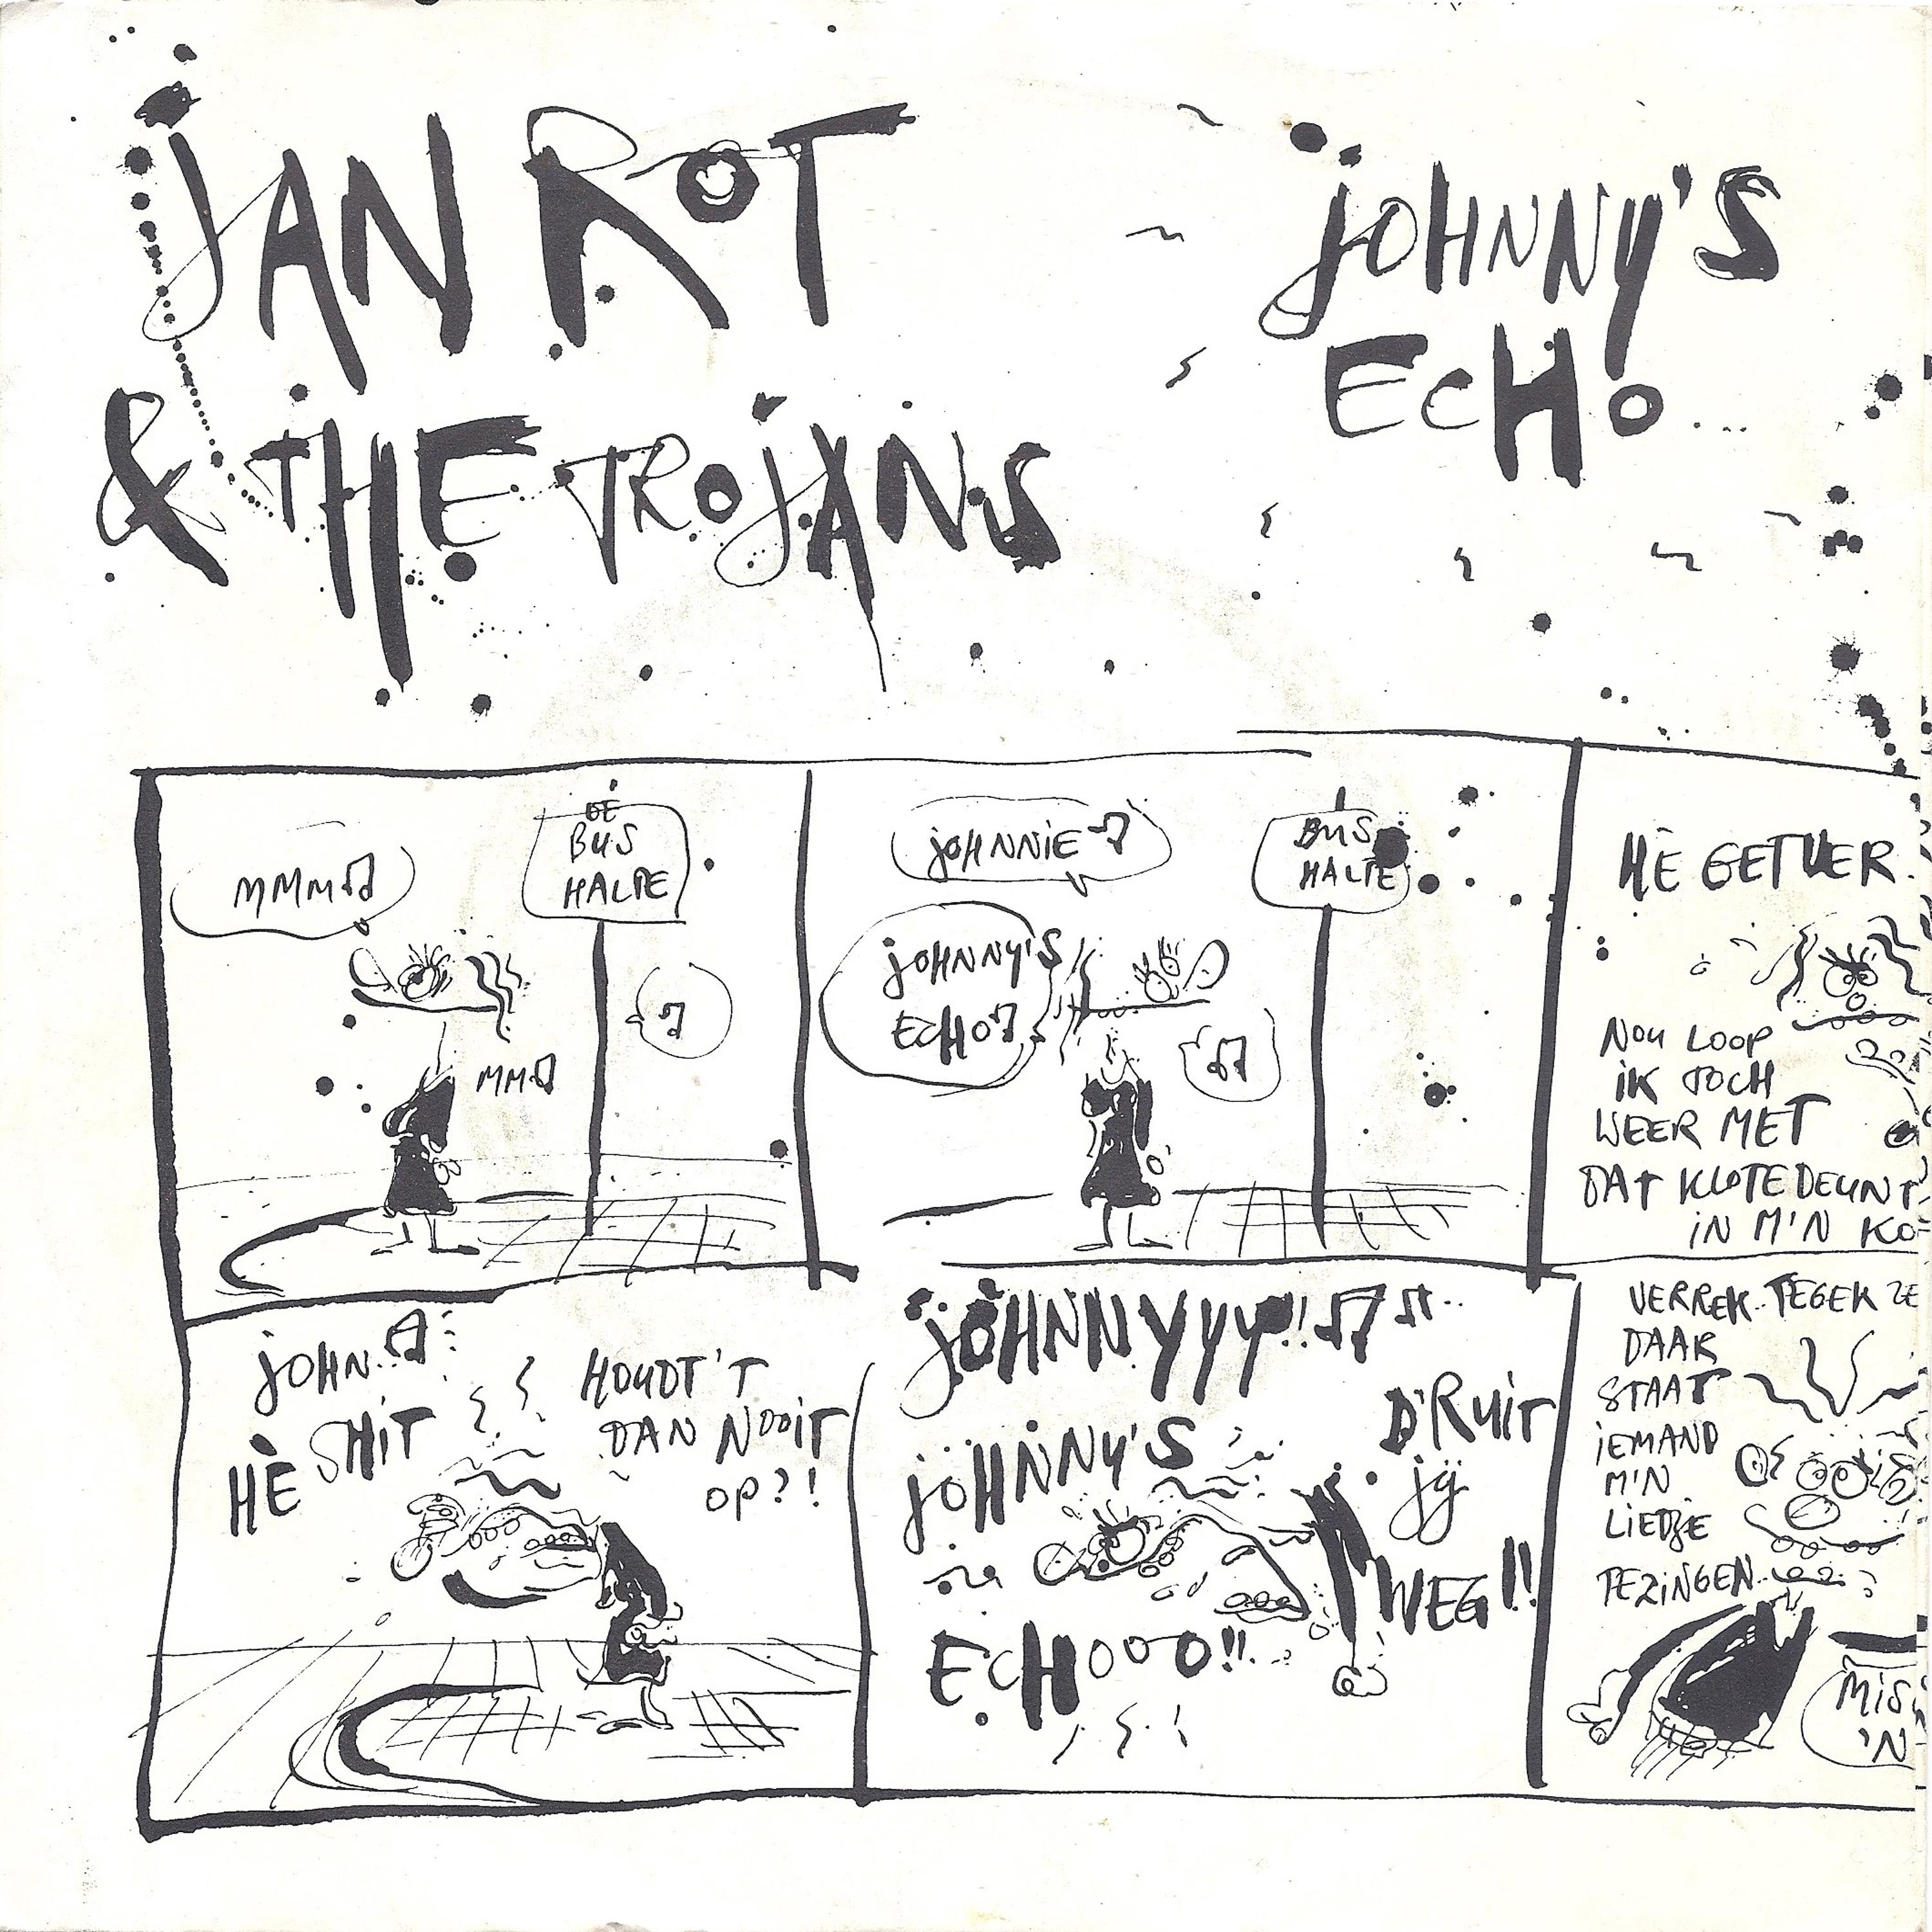 JAN ROT
& THE TROJANS
JOHNNY'S
ECHO...
MMM
DE
BUS
HALTE
MM
JOHNNIE
JOHNNY'S
ECHO
BUS
HALTE
HÈ GETVER.
NOU LOOP
IK TOCH
WEER MET
DAT KLOTEDEUNT
IN M'N KO
JOHN..
HÈ SHIT
HOUDT'T
DAN NOOIT
OP?!
JOHNNYYY!!
JOHNNY'S
ECHOOOO!!..
D'RUIT
JIJ
WEG!!
VERREK..TEGEK ZE
DAAR
STAAT
IEMAND
M'N
LIEDJE
TEZINGEN..
MIS
'N